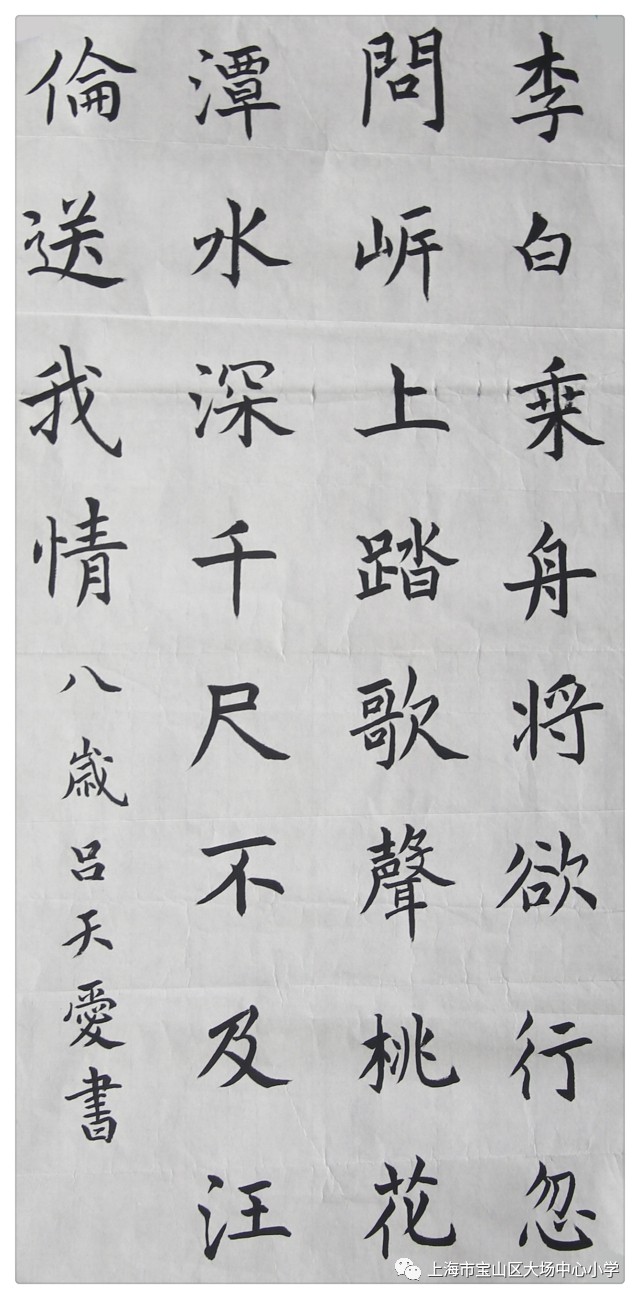 李白乘舟将欲行忽
問岸上踏歌聲桃花
潭水深千尺不及汪
倫送我情
八歳吕天愛書
上海市宝山区大场中心小学